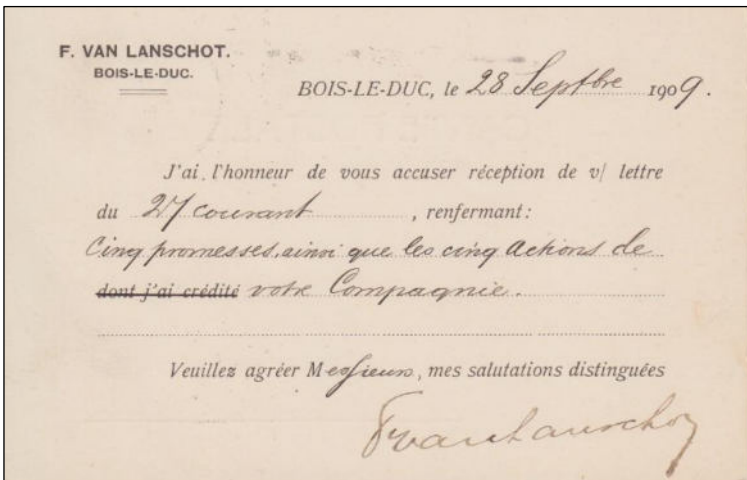 F. VAN LANSCHOT.
BOIS-LE-DUC.
BOIS-LE-DUC, le 28 Septbre 1909.
J'ai l'honneur de vous accuser réception de v/ lettre
du 27 courant, renfermant:
Cinq promesses, ainsi que les cinq Actions de
dont j'ai crédité votre Compagnie.
Veuillez agréer Messieurs, mes salutations distinguées
FvanLanschot